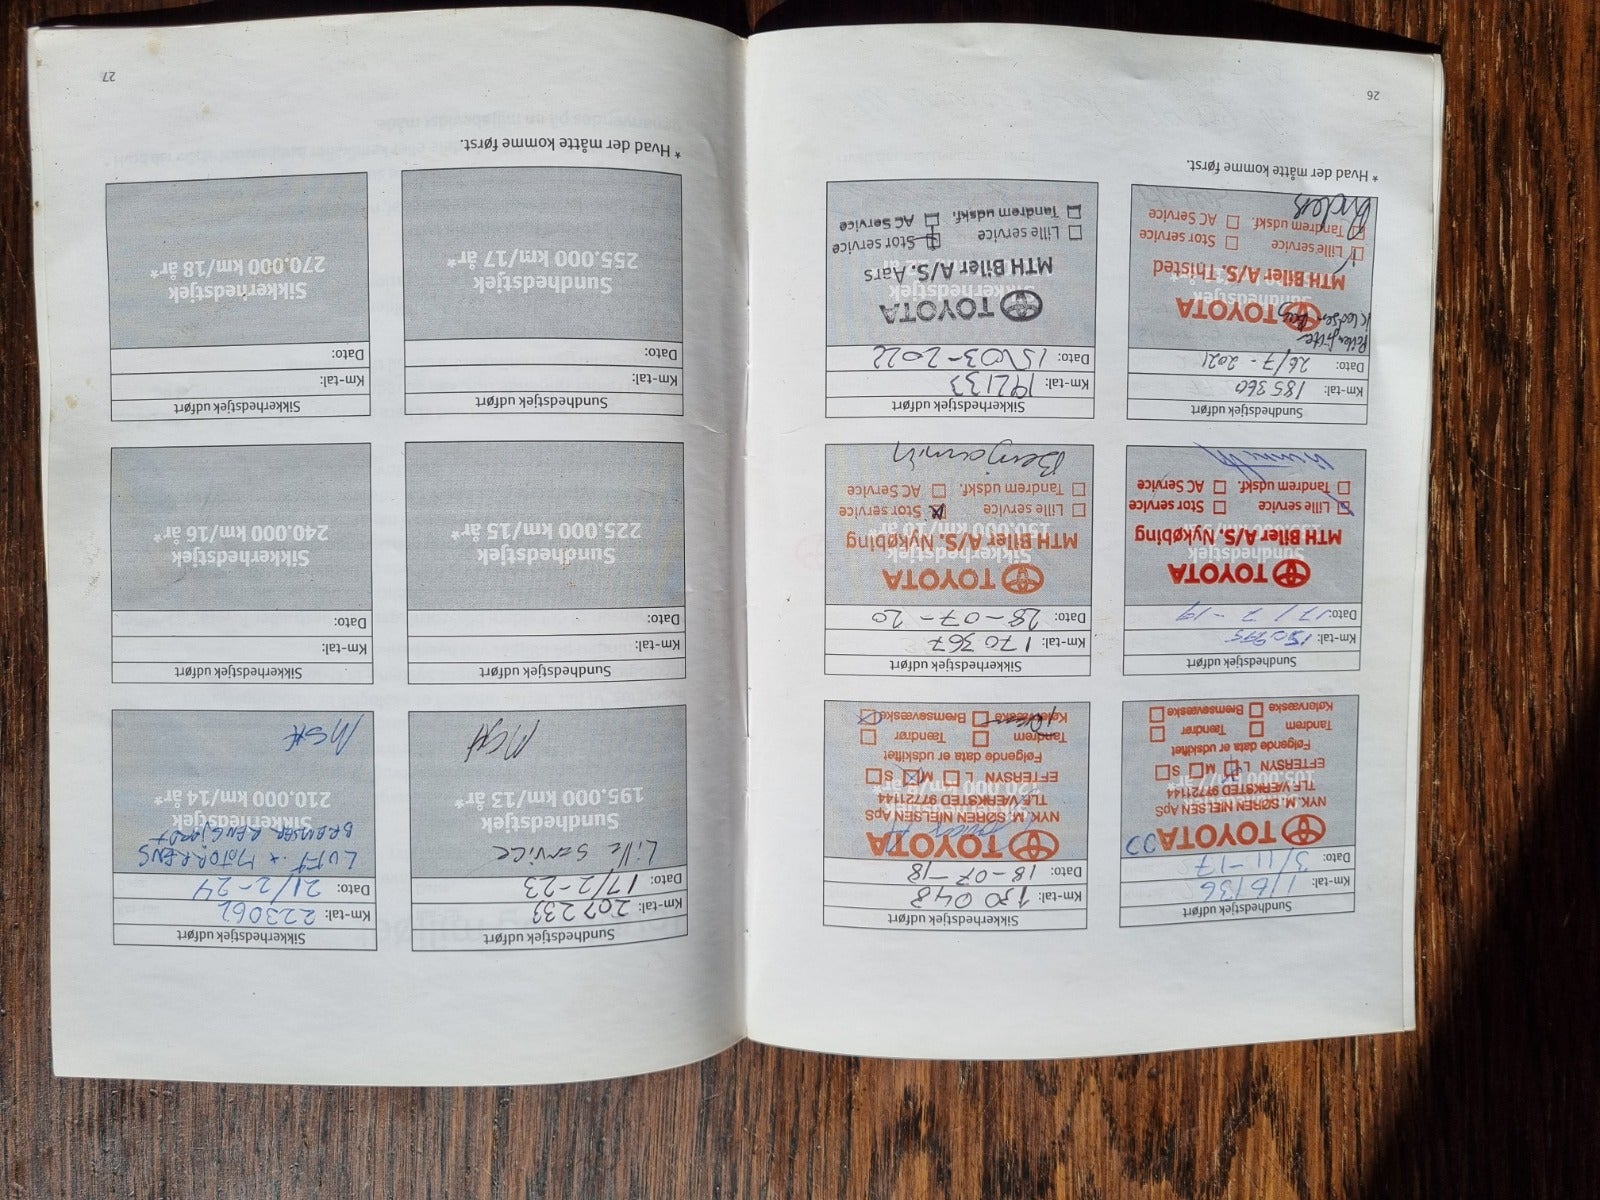 Sundhedstjek udført
Km-tal: 116136
Dato: 3/11-17
TOYOTA
NYK. M. SØREN NIELSEN ApS
TLF. VÆRKSTED 97721144
105.000
EFTERSYN L M S
Følgende data er udskiftet
Tandrem Tændrør
Kølervæske Bremsevæske
Sikkerhedstjek udført
Km-tal: 130048
Dato: 18-07-18
TOYOTA
NYK. M. SØREN NIELSEN ApS
TLF. VÆRKSTED 97721144
EFTERSYN L M S
Følgende data er udskiftet
Tandrem Tændrør
Kølervæske Bremsevæske
Sundhedstjek udført
Km-tal: 150.995
Dato: 17/7-19
TOYOTA
Sundhedstjek
MTH Biler A/S. Nykøbing
Lille service Stor service
Tandrem udskf. AC Service
Sikkerhedstjek udført
Km-tal: 170367
Dato: 28-07-20
TOYOTA
Sikkerhedstjek
MTH Biler A/S. Nykøbing
150.000 km/10 år*
Lille service Stor service
Tandrem udskf. AC Service
Benjamin
Sundhedstjek udført
Km-tal: 185360
Dato: 26/7-2021
TOYOTA
Sundhedstjek
MTH Biler A/S. Thisted
Lille service Stor service
Tandrem udskf. AC Service
Sikkerhedstjek udført
Km-tal: 192133
Dato: 15-03-2022
TOYOTA
Sikkerhedstjek
MTH Biler A/S. Aars
Lille service Stor service
Tandrem udskf. AC Service
* Hvad der måtte komme først.
26
Sundhedstjek udført
Km-tal: 207233
Dato: 17/2-23
Lille Service
Sundhedstjek
195.000 km/13 år*
MGH
Sikkerhedstjek udført
Km-tal: 223062
Dato: 21/2-24
LUFT + MOTORRENS
BREMSER RENGJORDT
Sikkerhedstjek
210.000 km/14 år*
Sundhedstjek udført
Km-tal:
Dato:
Sundhedstjek
225.000 km/15 år*
Sikkerhedstjek udført
Km-tal:
Dato:
Sikkerhedstjek
240.000 km/16 år*
Sundhedstjek udført
Km-tal:
Dato:
Sundhedstjek
255.000 km/17 år*
Sikkerhedstjek udført
Km-tal:
Dato:
Sikkerhedstjek
270.000 km/18 år*
* Hvad der måtte komme først.
27